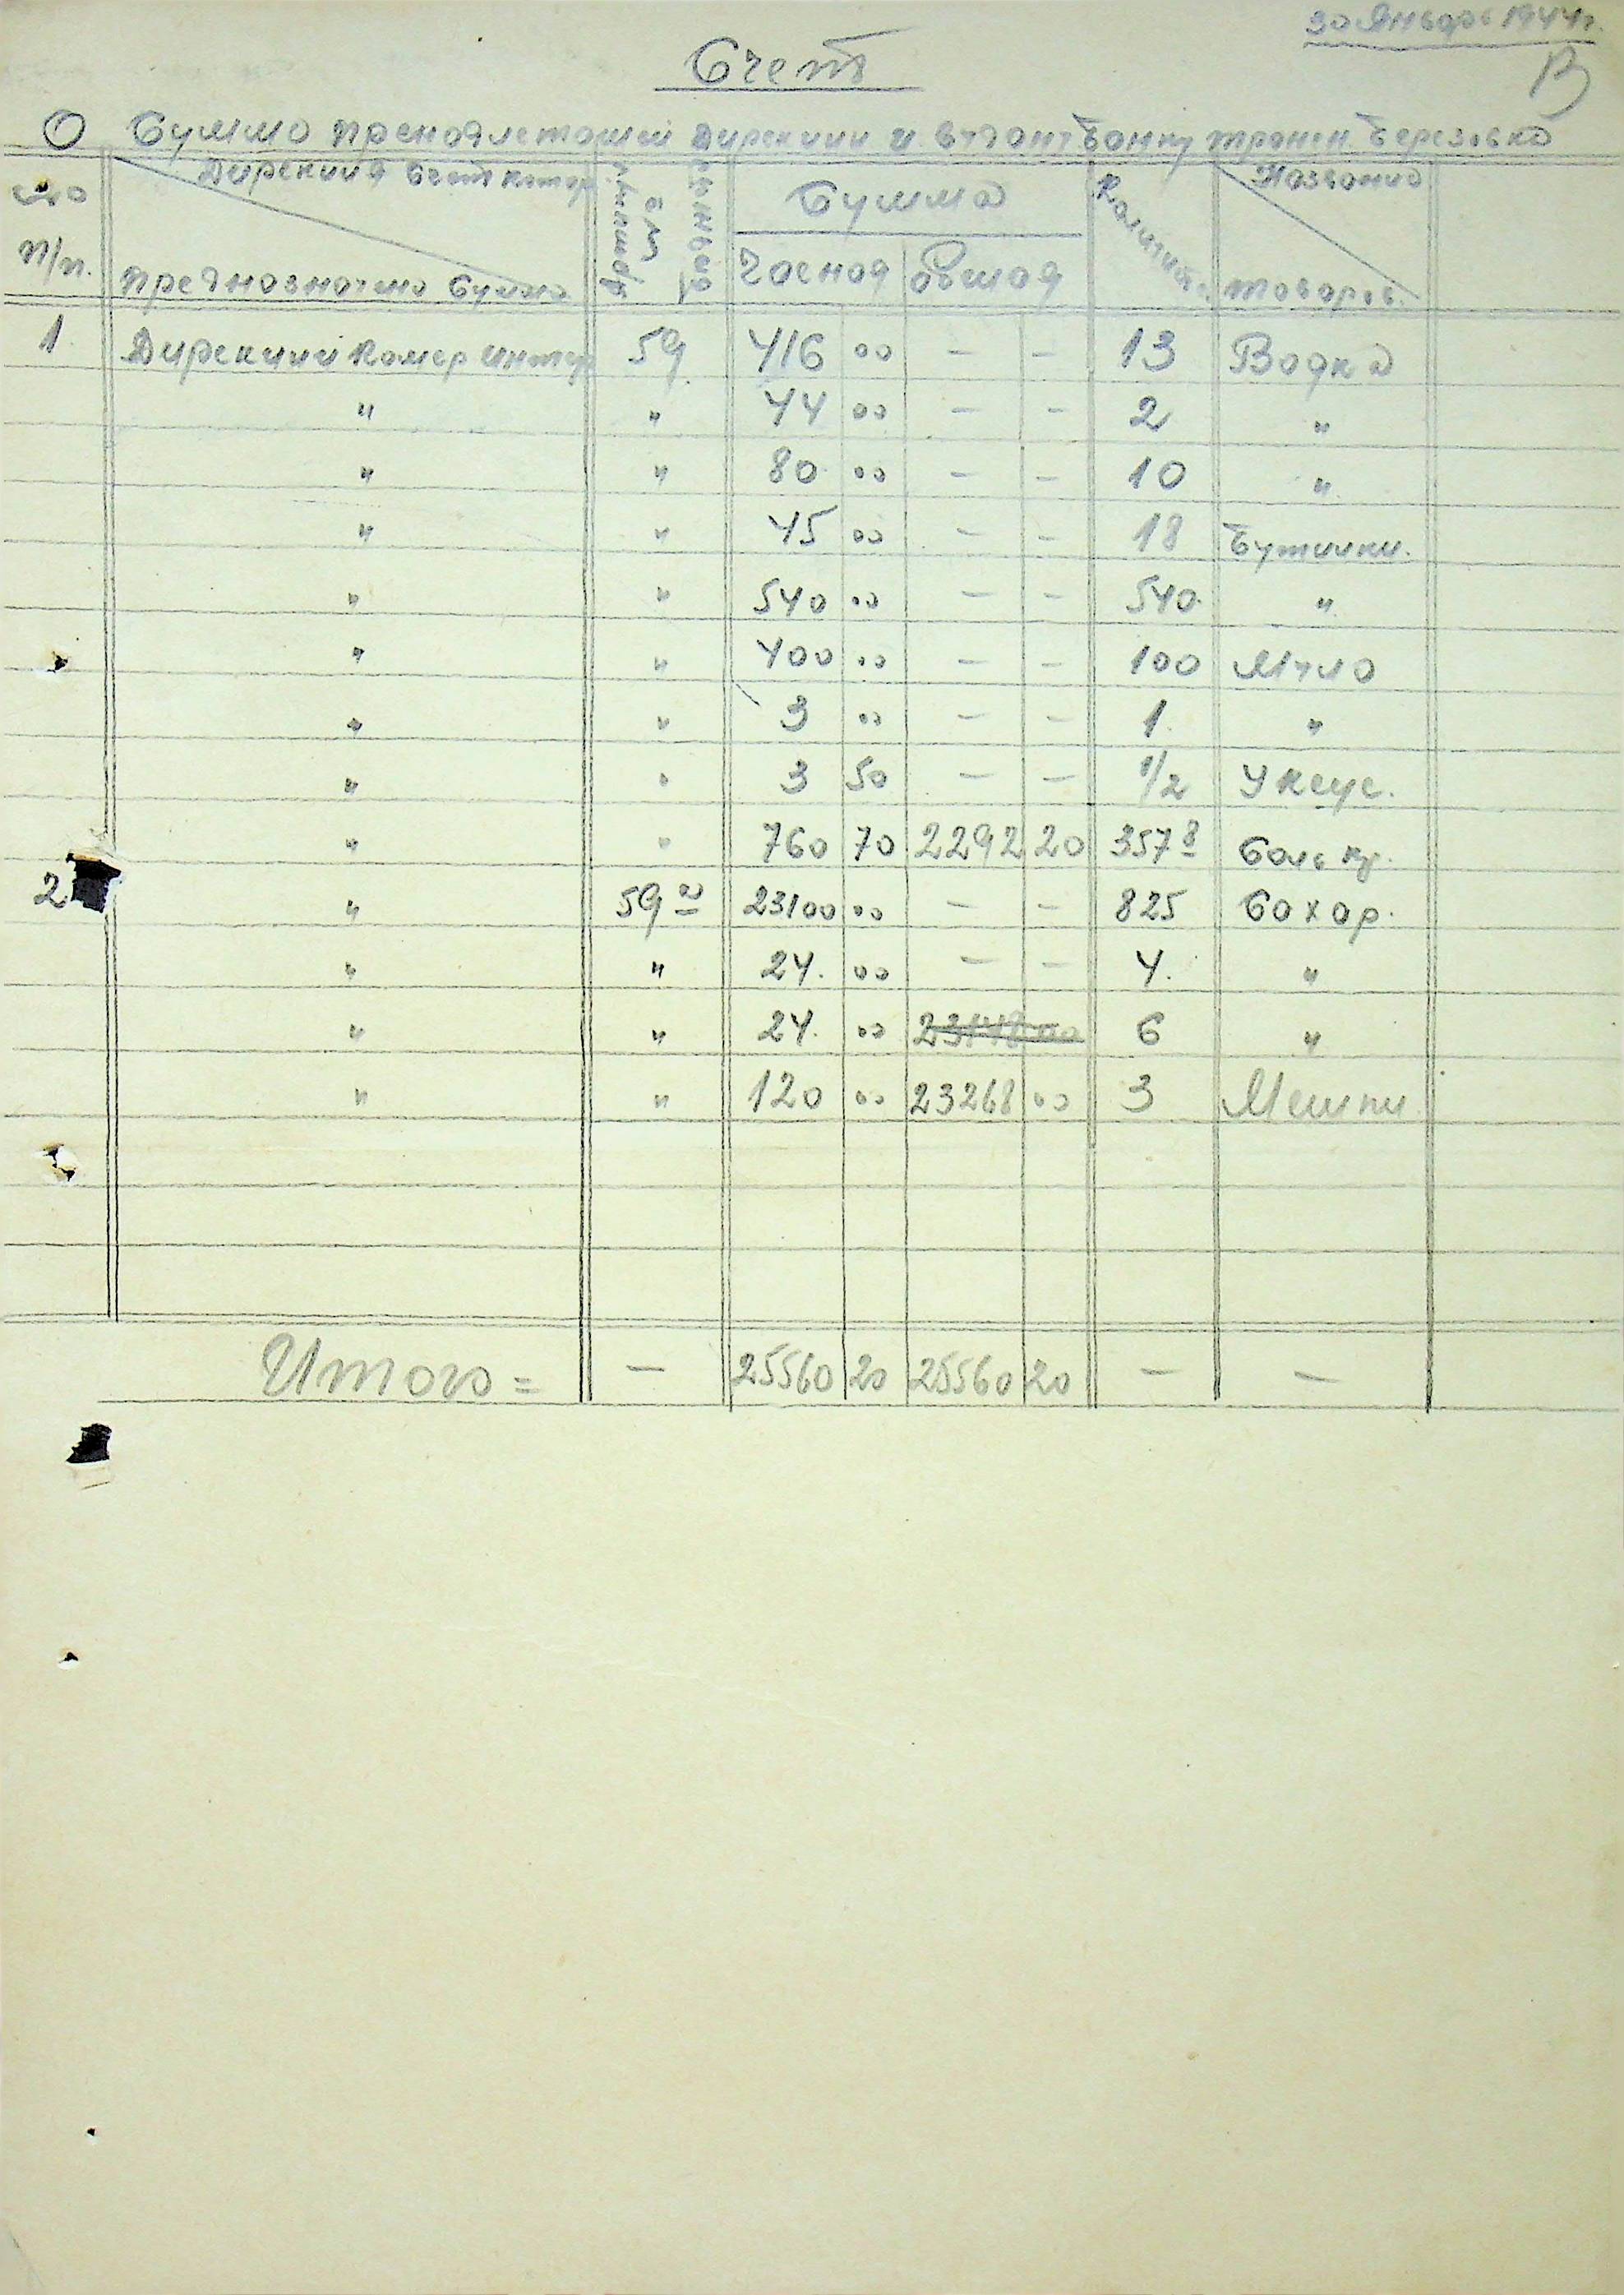 30 Январе 1944г.
В
Счет
О Сумме пренодлетощей Дирекции и Банку Березовко
№ п/п. Дирекция Счет Предназначено Сумма Сумма Часная Общая Количество Название товаров.
1 Дирекции Комерц 59 416 00 - - 13 Водка
" " 44 00 - - 2 "
" " 80 00 - - 10 "
" " 45 00 - - 18 Бутилки.
" " 540 00 - - 540 "
" " 400 00 - - 100 Мыло
" " 3 00 - - 1 "
" " 3 50 - - 1/2 Уксус.
" " 760 70 2292 20 357 8 Соль
2 " 59 а 23100 00 - - 825 Сахар.
" " 24. 00 - - 4. "
" " 24. 00 23148 00 6 "
" " 120 00 23268 00 3 Мешки
Итого = - 25560 20 25560 20 - -